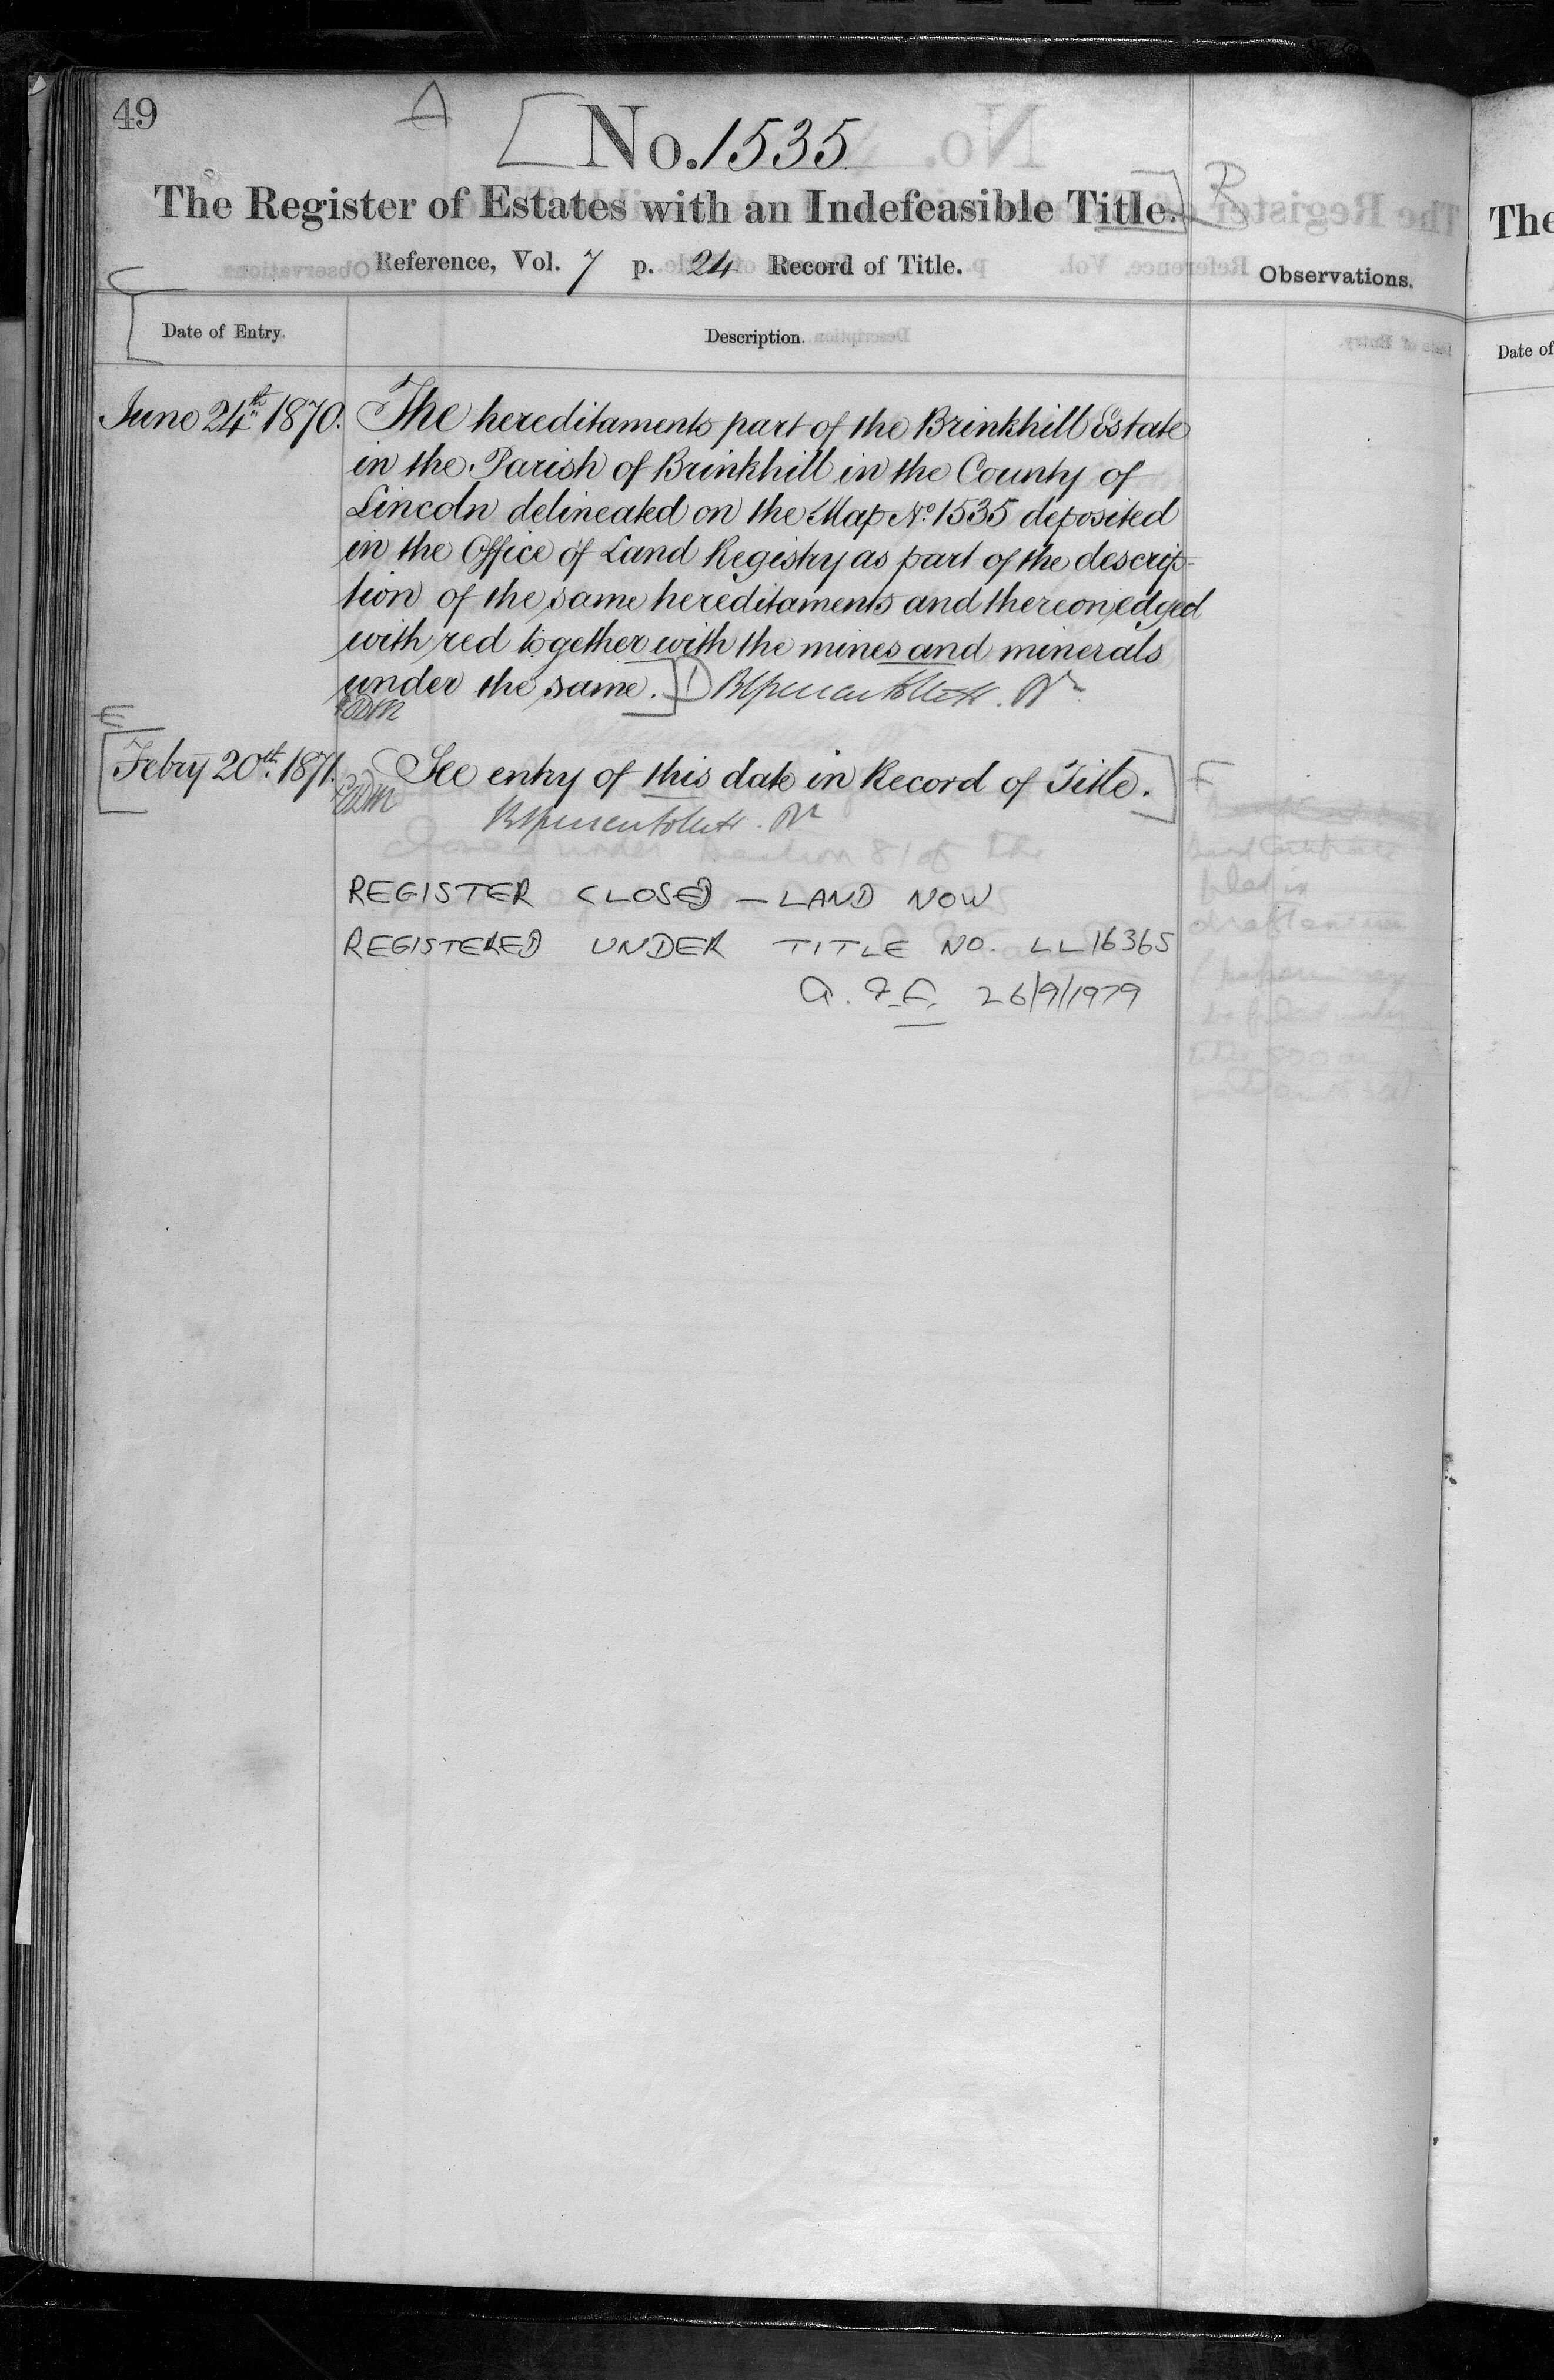 49
A
No. 1535.
The Register of Estates with an Indefeasible Title.
B
Reference, Vol. 7 p. 24 Record of Title.
Observations.
C
Date of Entry.
Description.
June 24th 1870.
The hereditaments part of the Brinkhill Estate
in the Parish of Brinkhill in the County of
Lincoln delineated on the Map No. 1535 deposited
in the Office of Land Registry as part of the descrip-
tion of the same hereditaments and thereon edged
with red together with the mines and minerals
under the same.
D
E
Febry 20th. 1871.
See entry of this date in Record of Title.
F
REGISTER CLOSED — LAND NOW
REGISTERED UNDER TITLE NO. LL16365
26/9/1979
The
Date of